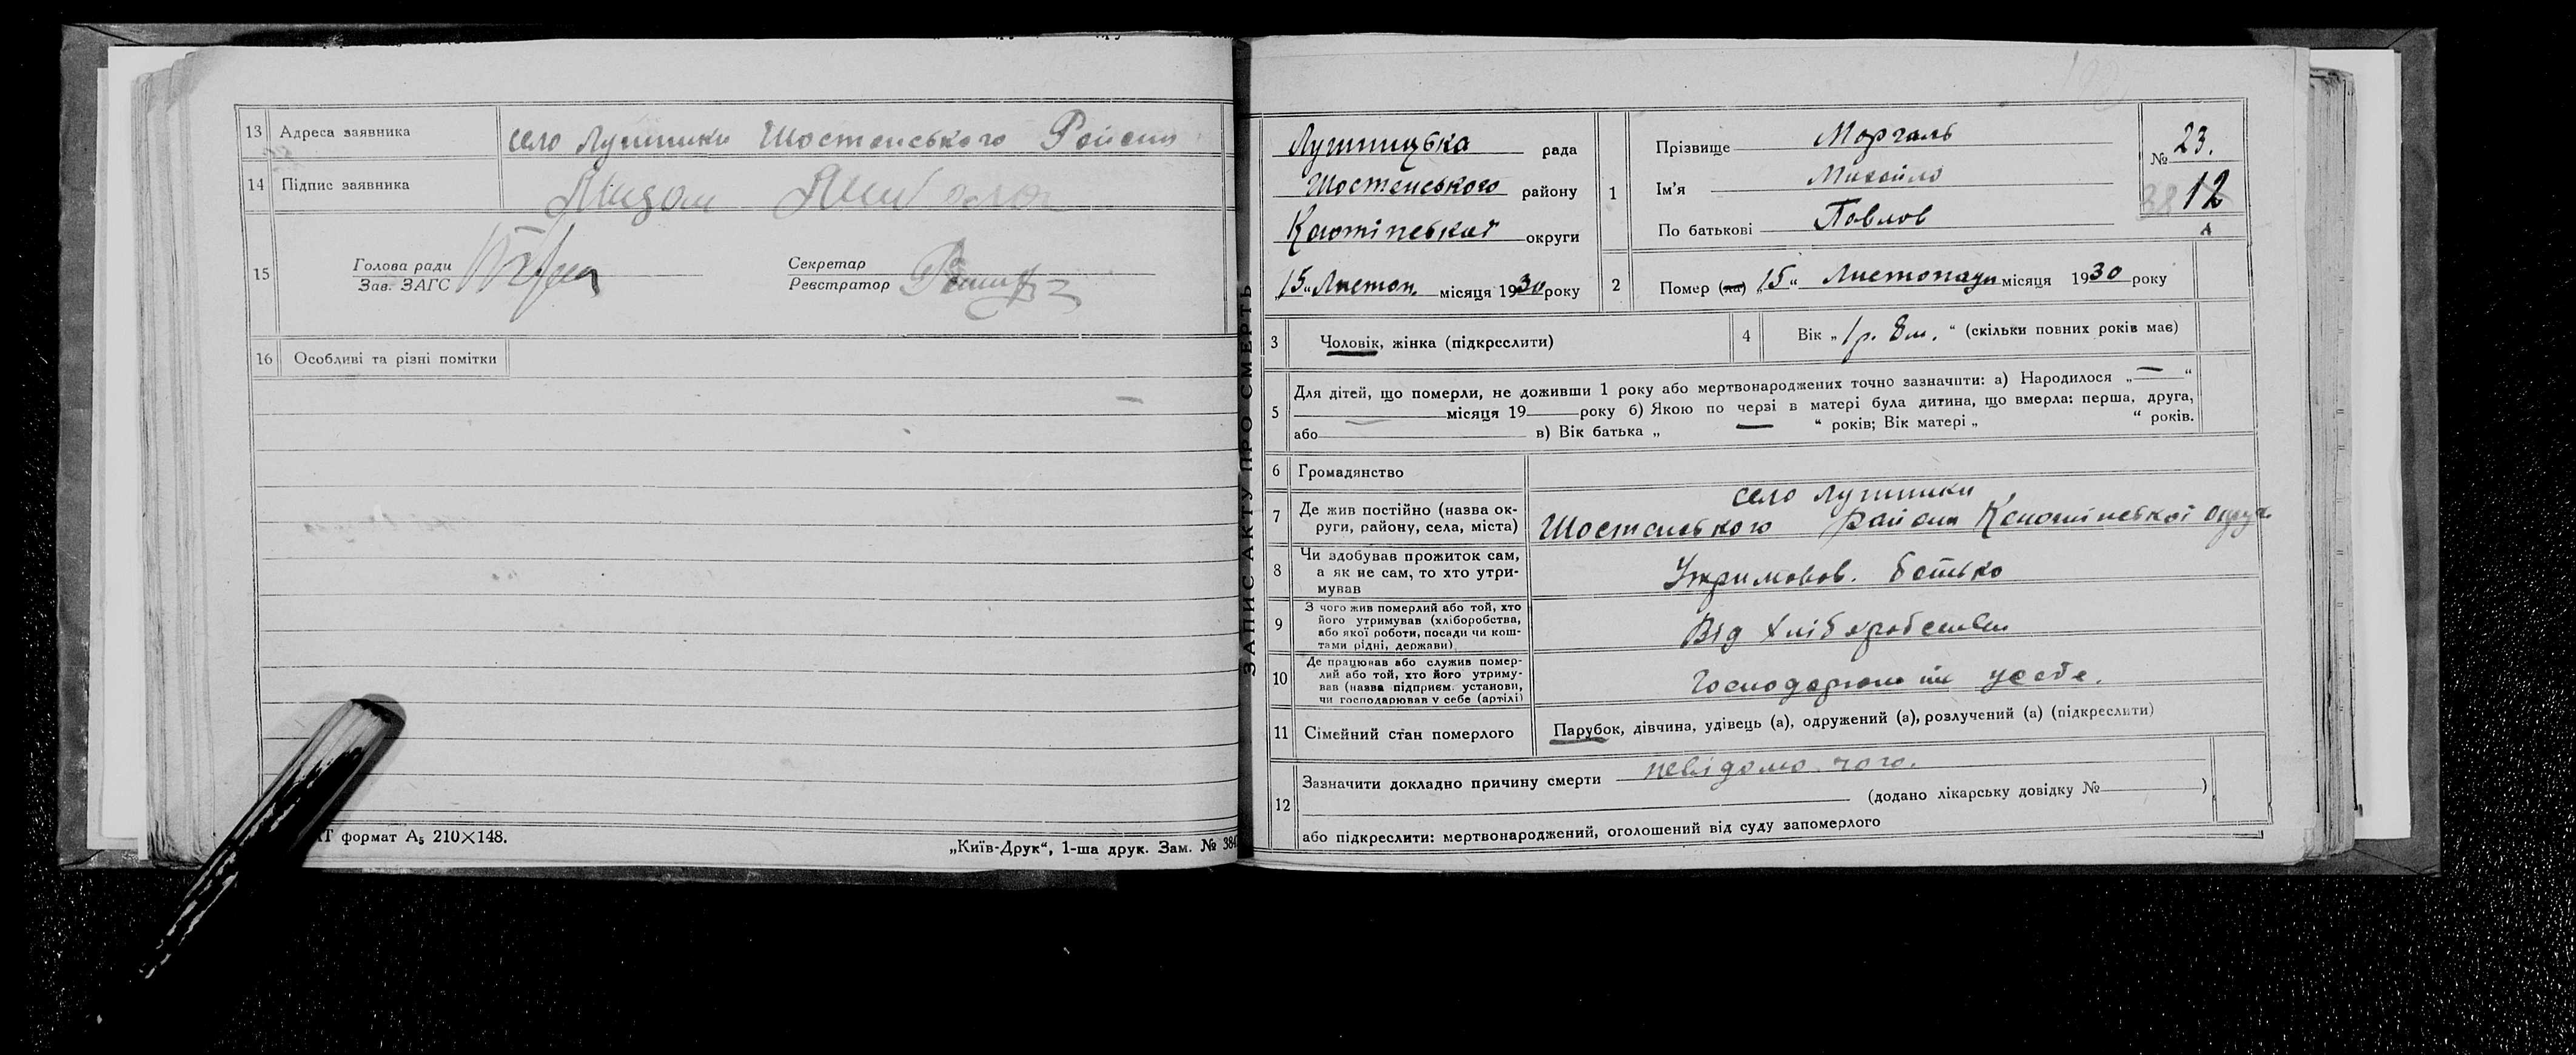 13 Адреса заявника село Лушники Шостенського Району
14 Підпис заявника
15 Голова ради
Зав. ЗАГС
Секретар
Реєстратор
16 Особливі та різні помітки
формат А₅ 210×148.
„Київ-Друк“, 1-ша друк. Зам. № 384
ЗАПИС АКТУ ПРО СМЕРТЬ
Лушницька рада
Шостенського району
Конотіпської округи
„15„ Листоп. місяця 1930 року
1 Прізвище Моргаль
Ім'я Михайло
По батькові Павлов
№ 23.
38 12
2 Помер (ла) „15“ Листопаду місяця 1930 року
3 Чоловік, жінка (підкреслити)
4 Вік „1 р. 8 м.“ (скільки повних років має)
5 Для дітей, що померли, не доживши 1 року або мертвонароджених точно зазначити: а) Народилося „—“
місяця 19 року б) Якою по черзі в матері була дитина, що вмерла: перша, друга,
або в) Вік батька „ — “ років; Вік матері „ “ років.
6 Громадянство
7 Де жив постійно (назва ок-
руги, району, села, міста)
село Лушники
Шостенського Району Конотіпської округи
8 Чи здобував прожиток сам,
а як не сам, то хто утри-
мував
Утримовав. батько
9 З чого жив померлий або той, хто
його утримував (хліборобства,
або якої роботи, посади чи кош-
тами рідні, держави)
Від хліборобства
10 Де працював або служив помер-
лий або той, хто його утриму-
вав (назва підприєм. установи,
чи господарював у себе (артілі)
у себе.
11 Сімейний стан померлого Парубок, дівчина, удівець (а), одружений (а), розлучений (а) (підкреслити)
12 Зазначити докладно причину смерти невідомо чого.
(додано лікарську довідку № )
або підкреслити: мертвонароджений, оголошений від суду запомерлого